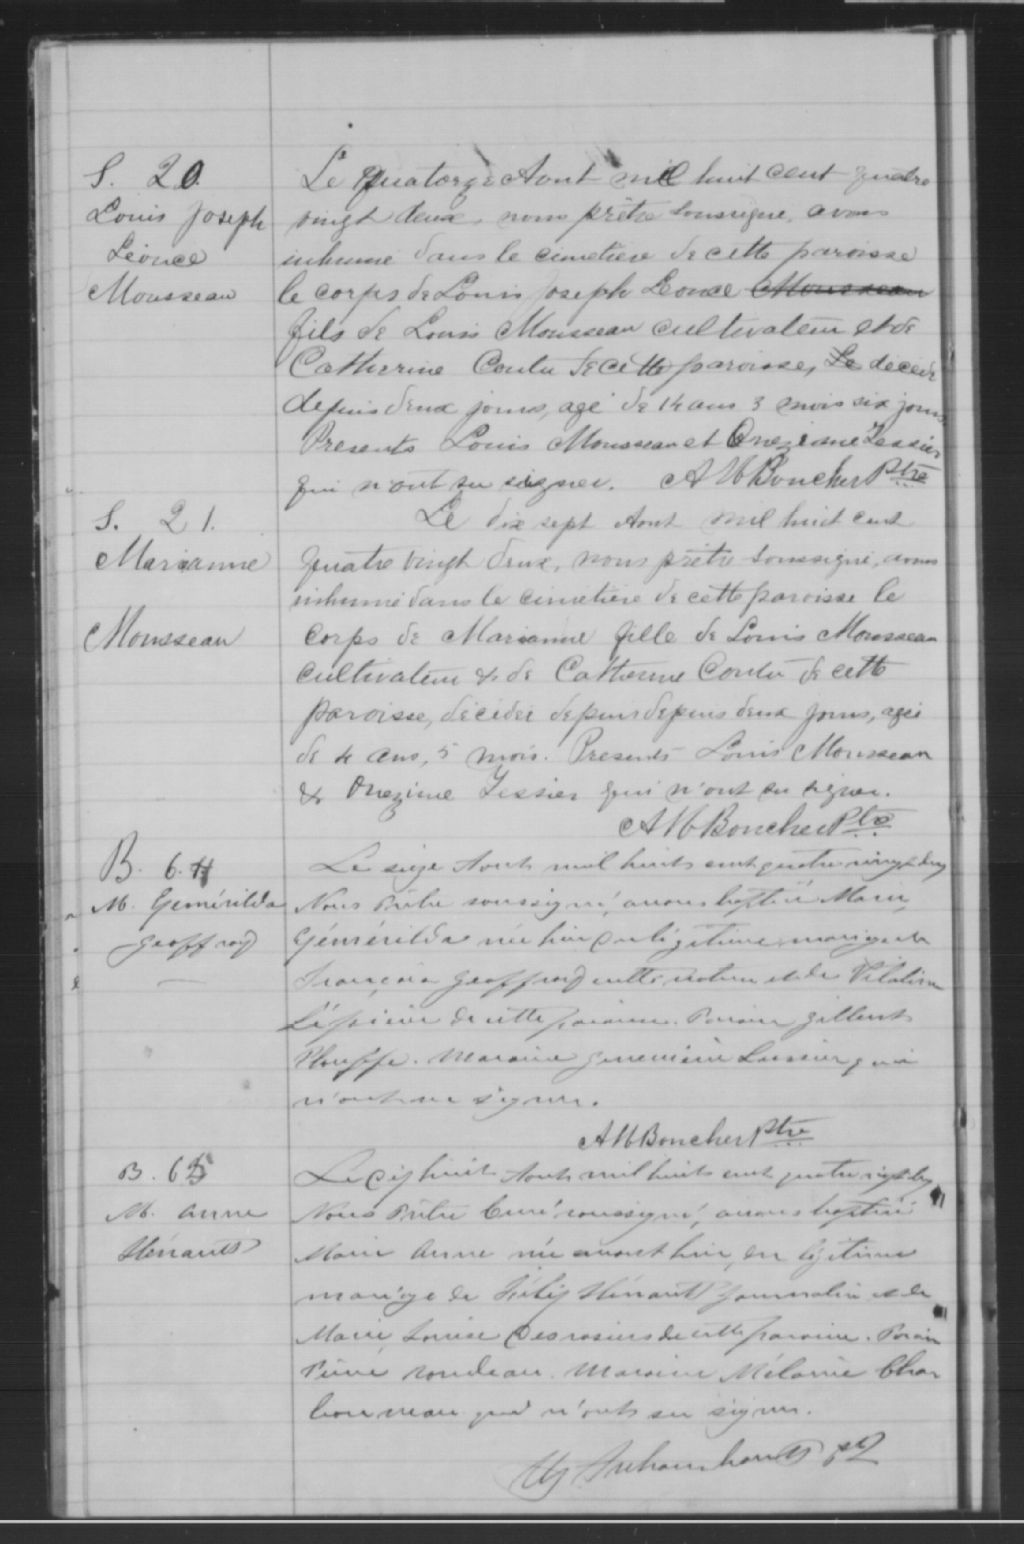 S. 20.
Louis Joseph
Léonce
Mousseau
Le Quatorze Aout mil huit cent quatre
vingt deux, nous prêtre soussigné, avons
inhumé dans le cimetière de cette paroisse
le corps de Louis Joseph Leonce Mousseau
fils de Louis Mousseau cultivateur et de
Catherine Coutu de cette paroisse, décédé
depuis deux jours, agé de 14 ans 3 mois six jours
Presents Louis Mousseau et Onezime Tessier
qui n'ont su signer. A M Boucher Ptre
S. 21.
Marianne
Mousseau
Le dix sept Aout mil huit cent
quatre vingt deux, nous prêtre soussigné, avons
inhumé dans le cimetière de cette paroisse le
corps de Marianne fille de Louis Mousseau
cultivateur & de Catherine Coutu de cette
paroisse, décédée depuis depuis deux jours, agée
de 4 ans, 5 mois. Presents Louis Mousseau
& Onezime Tessier qui n'ont su signer.
A M Boucher Ptre
B. 64
M. Gemérilda
Geoffroy
Le seize Aout mil huit cent quatre vingt deux
Nous Prêtre soussigné, avons baptisé Marie,
Gémérilda née hier du légitime mariage de
François Geoffroy cultivateur et de Vitaline
Lépine de cette paroisse. Parain Gilbert
Plouffe. Maraine Genevieve Lussier qui
n'ont su signer.
A M Boucher Ptre
B. 65
M. Anne
Hénault
Le dix huit Aout mil huit cent quatre vingt deux
Nous Prêtre Curé soussigné, avons baptisé
Marie Anne née avant hier, du légitime
mariage de Félix Hénault Journalier et de
Marie Louise Desrosiers de cette paroisse. Parain
Pierre Rondeau. Maraine Mélanie Char
bonneau qui n'ont su signer.